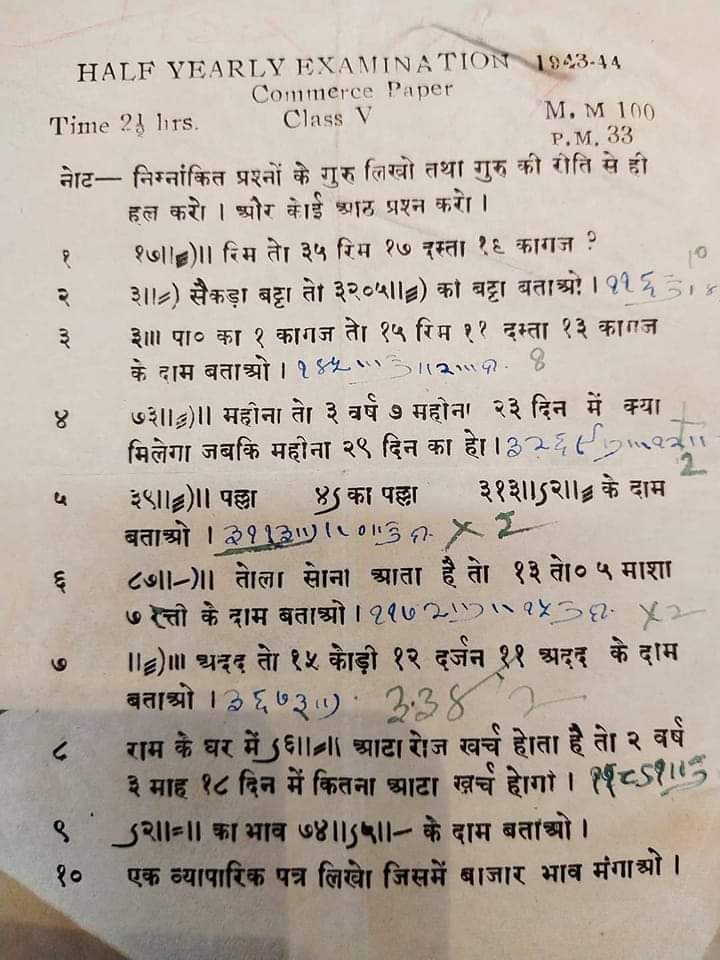 HALF YEARLY EXAMINATION 1943-44
Commerce Paper
Time 2½ hrs. Class V M. M 100
P.M. 33
नोट— निम्नांकित प्रश्नों के गुरु लिखो तथा गुरु की रीति से ही
हल करो । और कोई आठ प्रश्न करो ।
१ १७॥≡)॥ रिम तो ३५ रिम १७ दस्ता १६ कागज ?
10
२ ३॥=) सैकड़ा बट्टा तो ३२०५॥≡) का बट्टा बताओ ।
३ ३॥। पा० का १ कागज तो १५ रिम ११ दस्ता १३ कागज
के दाम बताओ । 8
४ ७३॥≡)॥ महीना तो ३ वर्ष ७ महीना २३ दिन में क्या
मिलेगा जबकि महीना २९ दिन का हो ।
2
५ ३९॥≡)॥ पल्ला ४ऽ का पल्ला ३१३॥ऽ२॥≡ के दाम
बताओ । × 2
६ ८७॥-)॥ तोला सोना आता है तो १३ तो० ५ माशा
७ रत्ती के दाम बताओ । ×2
७ ॥≡)॥। अदद तो १५ कोड़ी १२ दर्जन ११ अदद के दाम
बताओ । 2
८ राम के घर में ऽ६॥=॥ आटा रोज खर्च होता है तो २ वर्ष
३ माह १८ दिन में कितना आटा खर्च होगा ।
९ ऽ२॥=॥ का भाव ७४॥ऽ५॥- के दाम बताओ ।
१० एक व्यापारिक पत्र लिखो जिसमें बाजार भाव मंगाओ ।